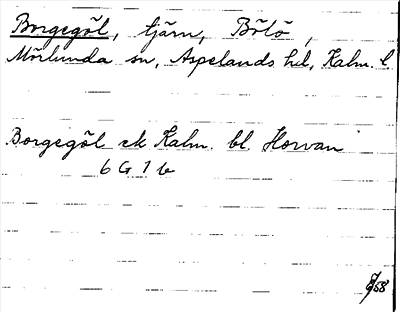 Borgegöl, tjärn, Bötö,
Mörlunda sn, Aspelands hd, Kalm. l
Borgegöl ek Kalm. bl. Horvan
6 G 7 b
/58